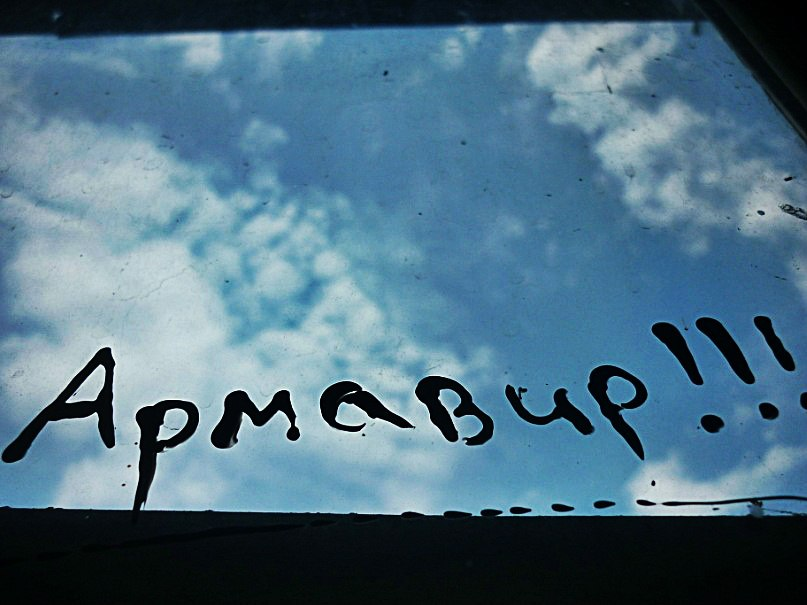 Армавир!!!